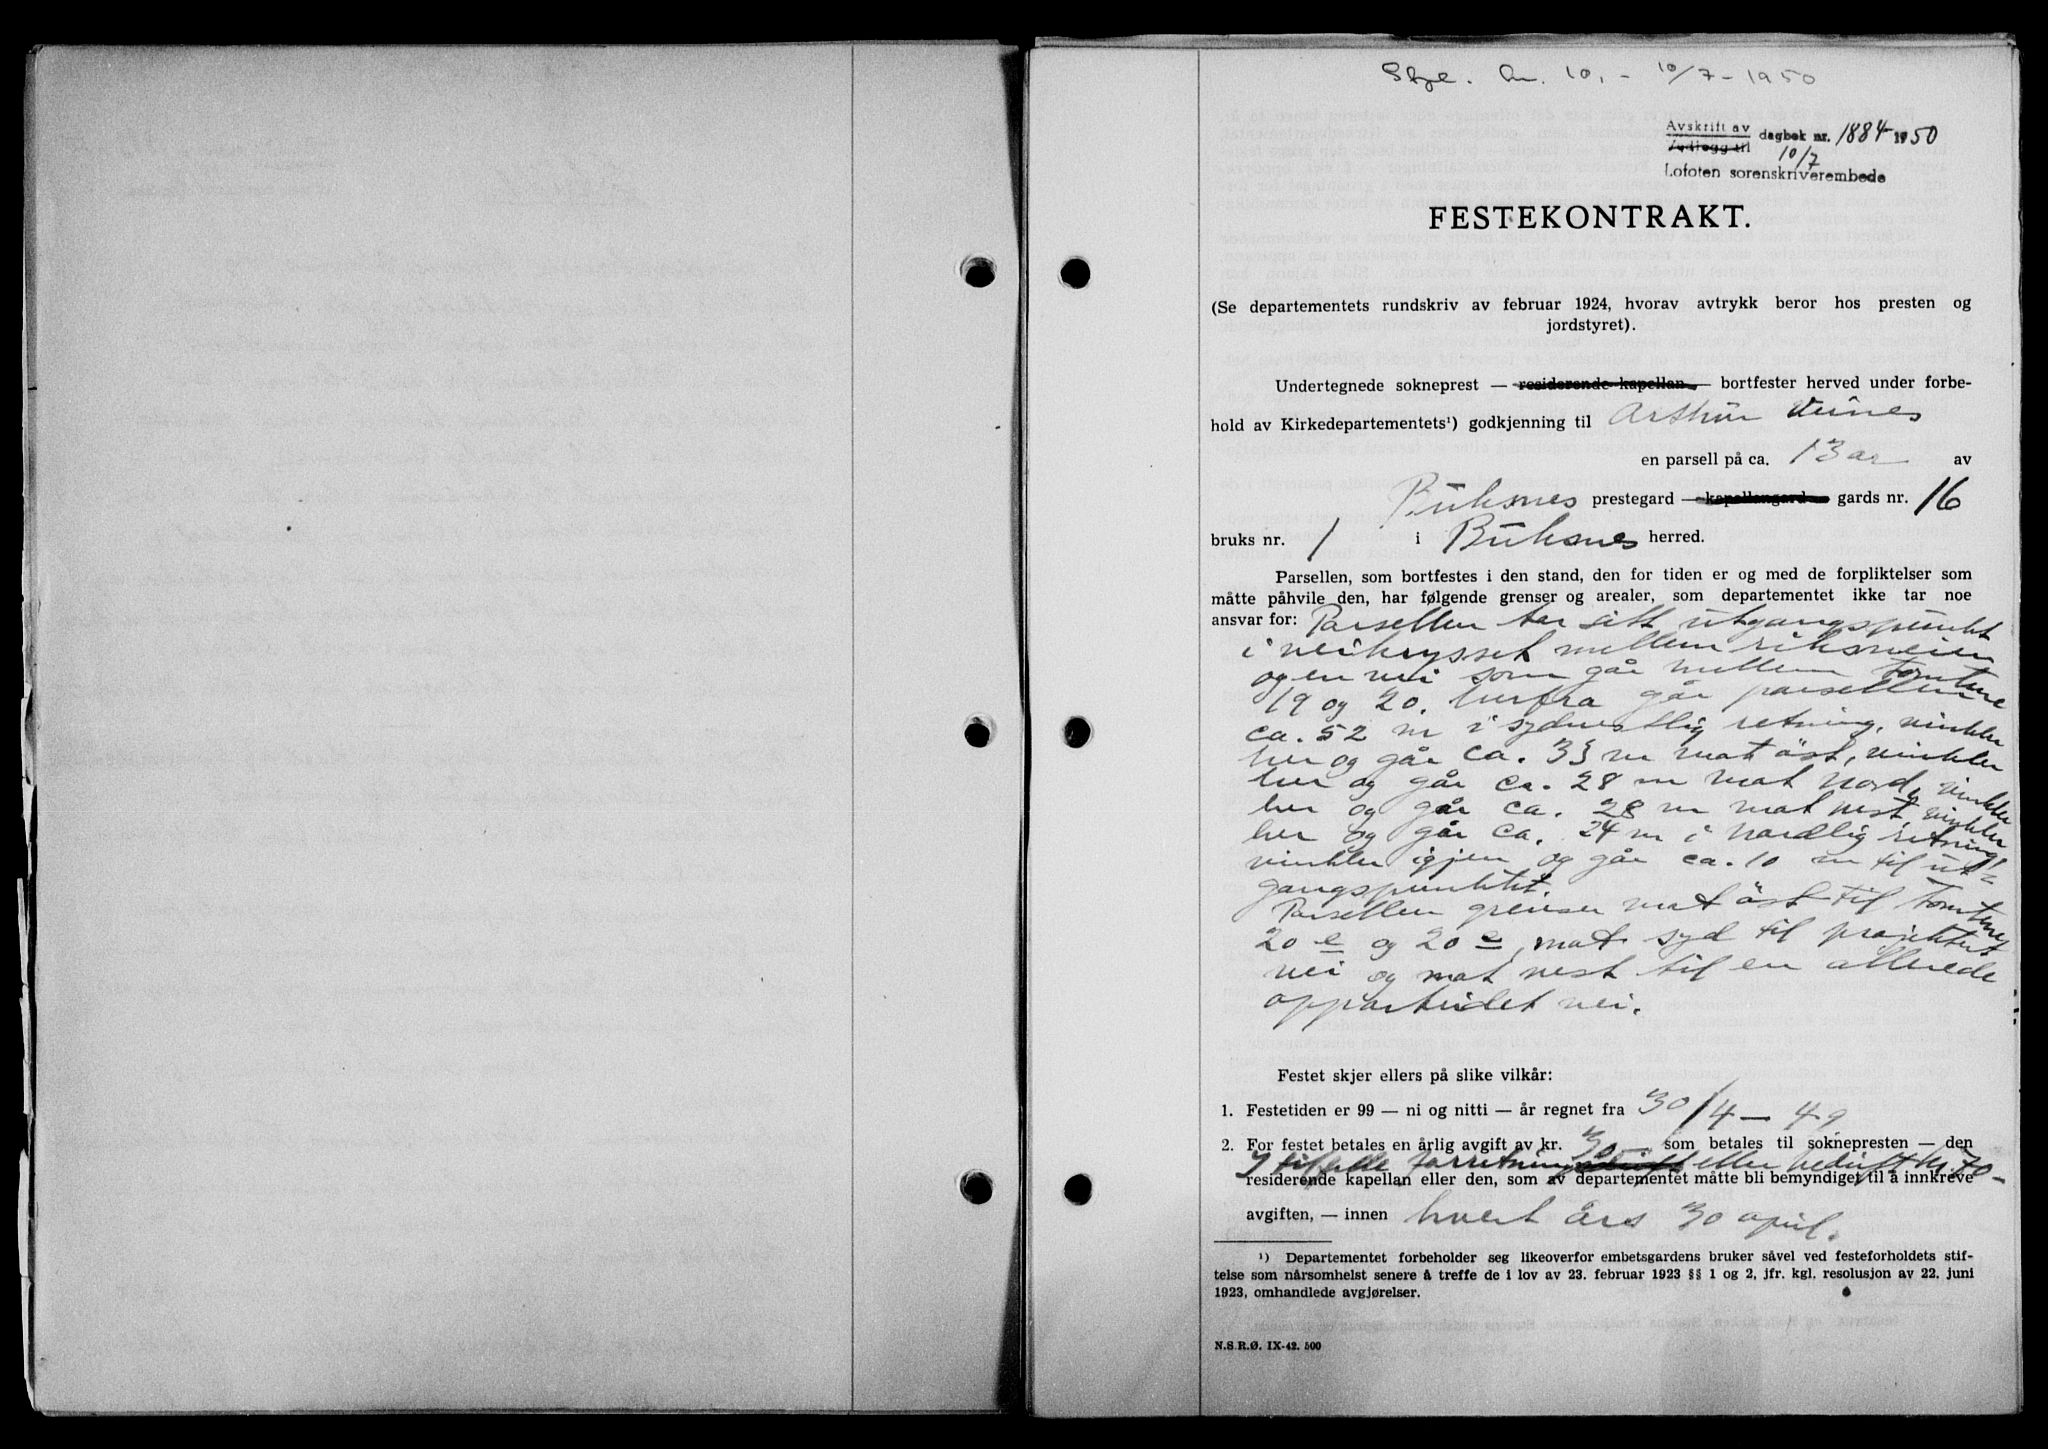 Stpl. kr. 10,- 10/7-1950
Avskrift av
Vedlegg til dagbok nr. 1884 1950
10/7
Lofoten sorenskriverembede
FESTEKONTRAKT.
(Se departementets rundskriv av februar 1924, hvorav avtrykk beror hos presten og
jordstyret).
Undertegnede sokneprest — residerende kapellan — bortfester herved under forbe-
hold av Kirkedepartementets¹) godkjenning til Arthur Veines
en parsell på ca. 13 ar av
Buksnes prestegard — kapellangard — gards nr. 16
bruks nr. 1 i Buksnes herred.
Parsellen, som bortfestes i den stand, den for tiden er og med de forpliktelser som
måtte påhvile den, har følgende grenser og arealer, som departementet ikke tar noe
ansvar for: Parsellen tar sitt utgangspunkt
i veikrysset mellem riksveien
og en vei som går mellem tomtene
19 og 20. Herfra går parsellen
ca. 52 m i sydvestlig retning, vinkler
her og går ca. 33 m mot øst, vinkler
her og går ca. 28 m mot nord, vinkler
her og går ca. 28 m mot vest, vinkler
her og går ca. 24 m i nordlig retning,
vinkler igjen og går ca. 10 m til ut=
gangspunktet.
Parsellen grenser mot øst til tomtene
20 e og 20 e, mot syd til projektert
vei og mot vest til en allerede
opparbeidet vei.
Festet skjer ellers på slike vilkår:
1. Festetiden er 99 — ni og nitti — år regnet fra 30/4 - 49
2. For festet betales en årlig avgift av kr. 30- som betales til soknepresten — den
I tilfelle forretning eller bedrift kr. 70-
residerende kapellan eller den, som av departementet måtte bli bemyndiget til å innkreve
avgiften, — innen hvert års 30 april.
¹) Departementet forbeholder seg likeoverfor embetsgardens bruker såvel ved festeforholdets stif-
telse som nårsomhelst senere å treffe de i lov av 23. februar 1923 §§ 1 og 2, jfr. kgl. resolusjon av 22. juni
1923, omhandlede avgjørelser.
N.S.R.Ø. IX-42. 500